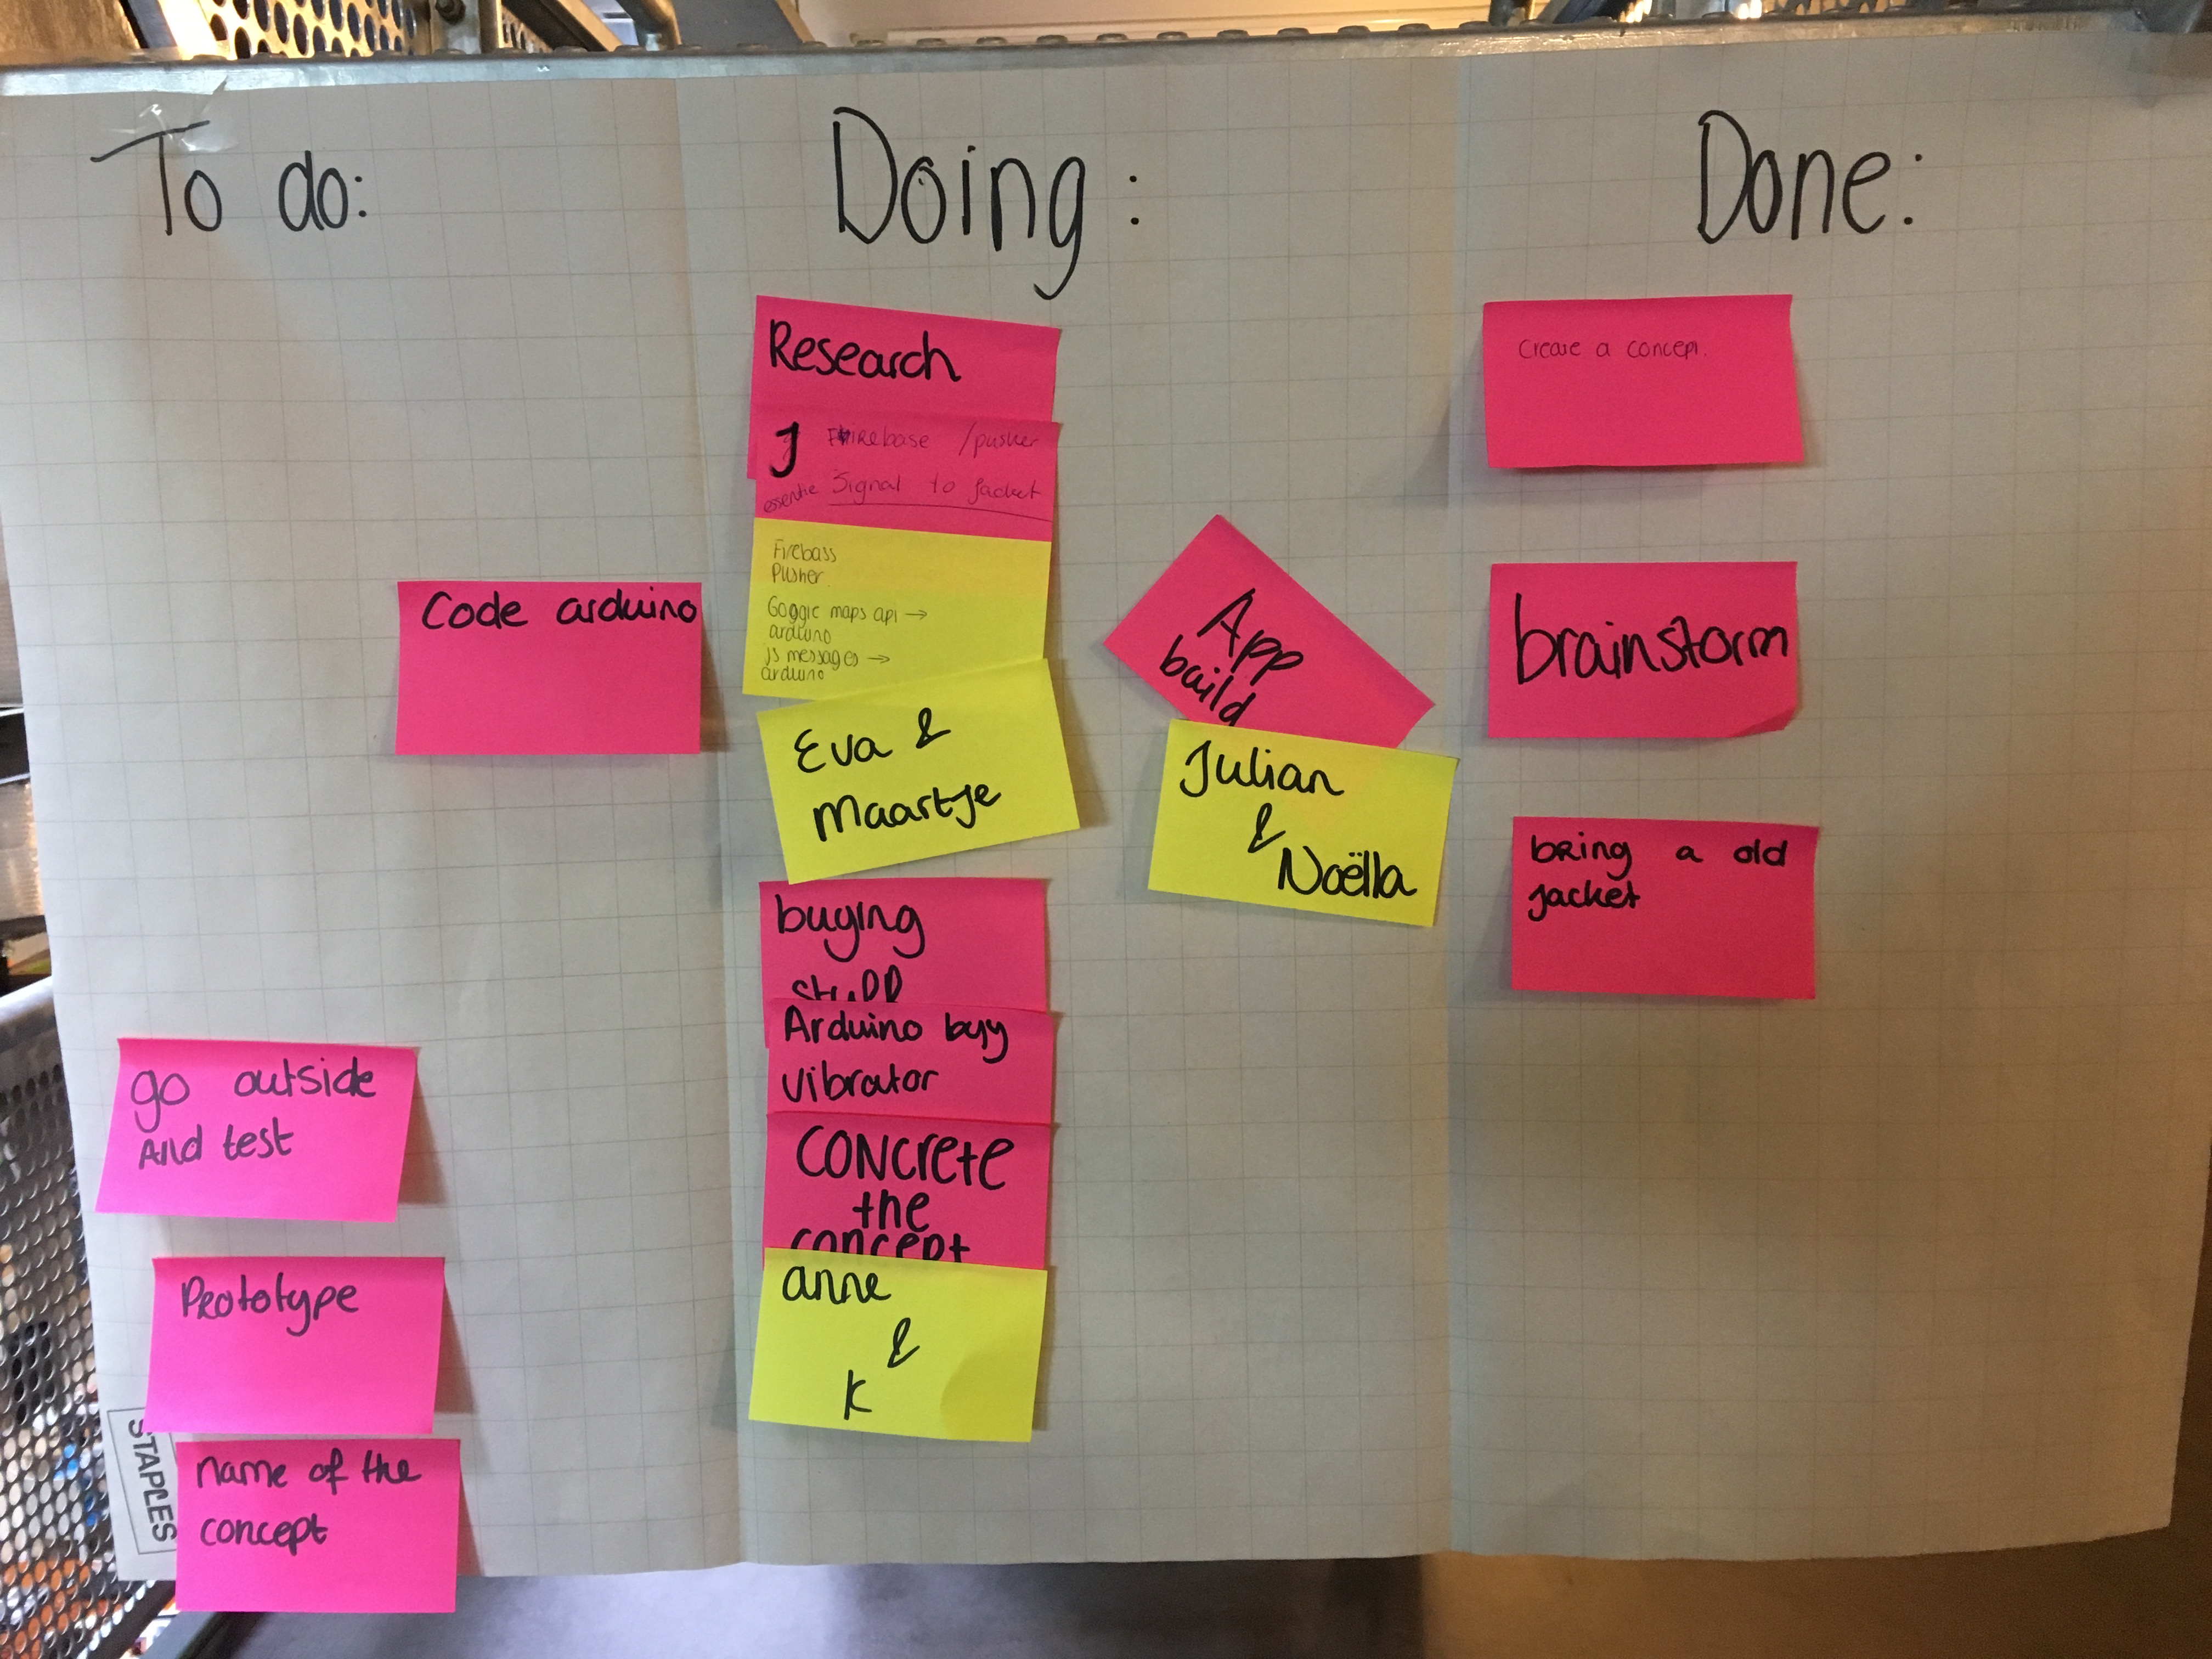 To do:
Code arduino
go outside
and test
Prototype
name of the
concept
STAPLES
Doing:
Research
J Firebase /pusher
essentie Signal to jacket
Firebass
Pusher.
Goggle maps api →
arduino
js messages →
arduino
Eva &
Maartje
App
baild
Julian
&
Noëlla
buying
stuff
Arduino buy
vibrator
CONCRETE
the
concept
anne
&
K
Done:
Create a concept.
brainstorm
bring a old
jacket